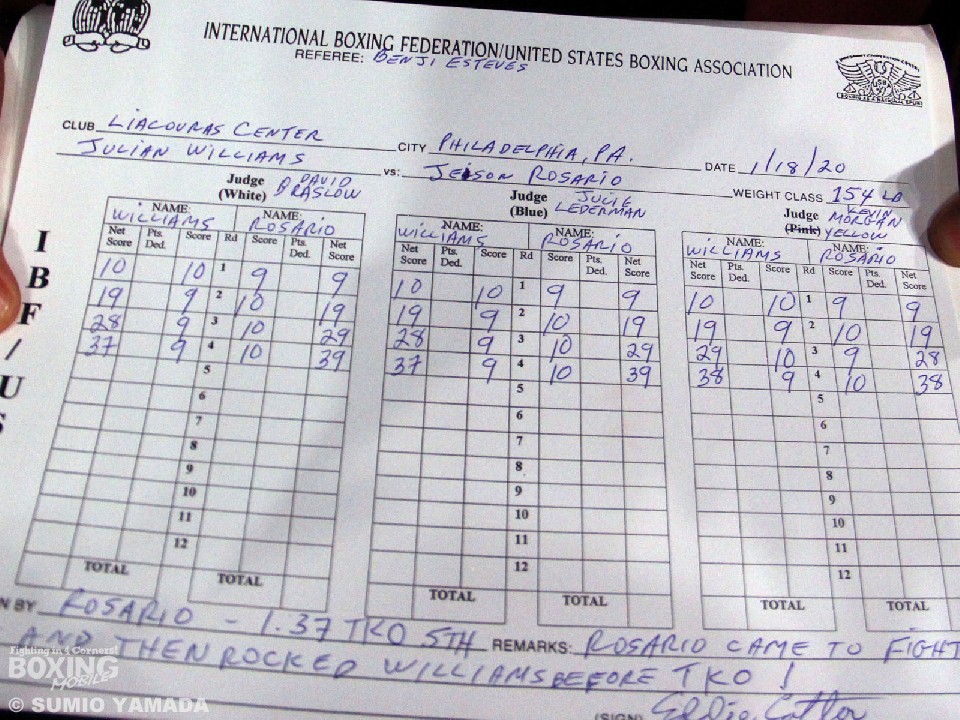 INTERNATIONAL BOXING FEDERATION/UNITED STATES BOXING ASSOCIATION
REFEREE: BENJI ESTEVES
CLUB LIACOURAS CENTER CITY PHILADELPHIA, PA. DATE 1/18/20
JULIAN WILLIAMS vs: JEISON ROSARIO WEIGHT CLASS 154 LB
IBF/US
Judge (White) DAVID BRASLOW
NAME: WILLIAMS NAME: ROSARIO
Net Score Pts. Ded. Score Rd Score Pts. Ded. Net Score
10 10 1 9 9
19 9 2 10 19
28 9 3 10 29
37 9 4 10 39
5
6
7
8
9
10
11
12
TOTAL TOTAL
Judge (Blue) JULIE LEDERMAN
NAME: WILLIAMS NAME: ROSARIO
Net Score Pts. Ded. Score Rd Score Pts. Ded. Net Score
10 10 1 9 9
19 9 2 10 19
28 9 3 10 29
37 9 4 10 39
5
6
7
8
9
10
11
12
TOTAL TOTAL
Judge (Pink) KEVIN MORGAN YELLOW
NAME: WILLIAMS NAME: ROSARIO
Net Score Pts. Ded. Score Rd Score Pts. Ded. Net Score
10 10 1 9 9
19 9 2 10 19
29 10 3 9 28
38 9 4 10 38
5
6
7
8
9
10
11
12
TOTAL TOTAL
N BY ROSARIO - 1.37 TKO 5TH REMARKS: ROSARIO CAME TO FIGHT
AND THEN ROCKED WILLIAMS BEFORE TKO !
(SIGN)
Fighting in 4 Corners!
BOXING
MOBILE
© SUMIO YAMADA